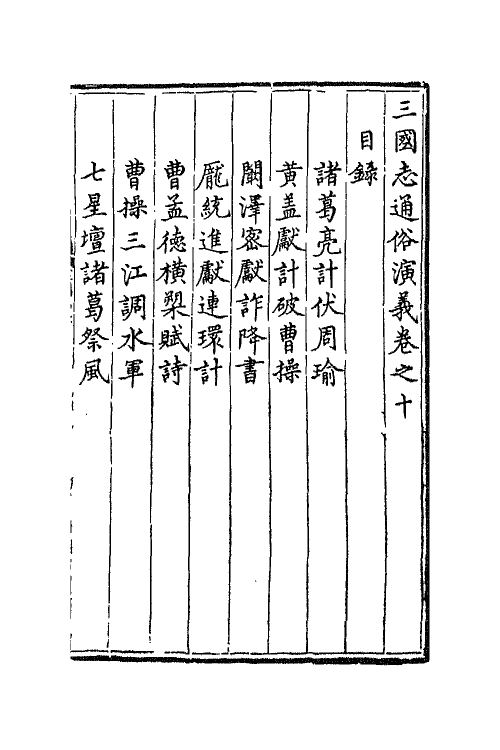 三國志通俗演義卷之十
目録
諸葛亮計伏周瑜
黃盖獻計破曹操
闞澤密獻詐降書
龎統進獻連環計
曹孟德橫槊賦詩
曹操三江調水軍
七星壇諸葛祭風